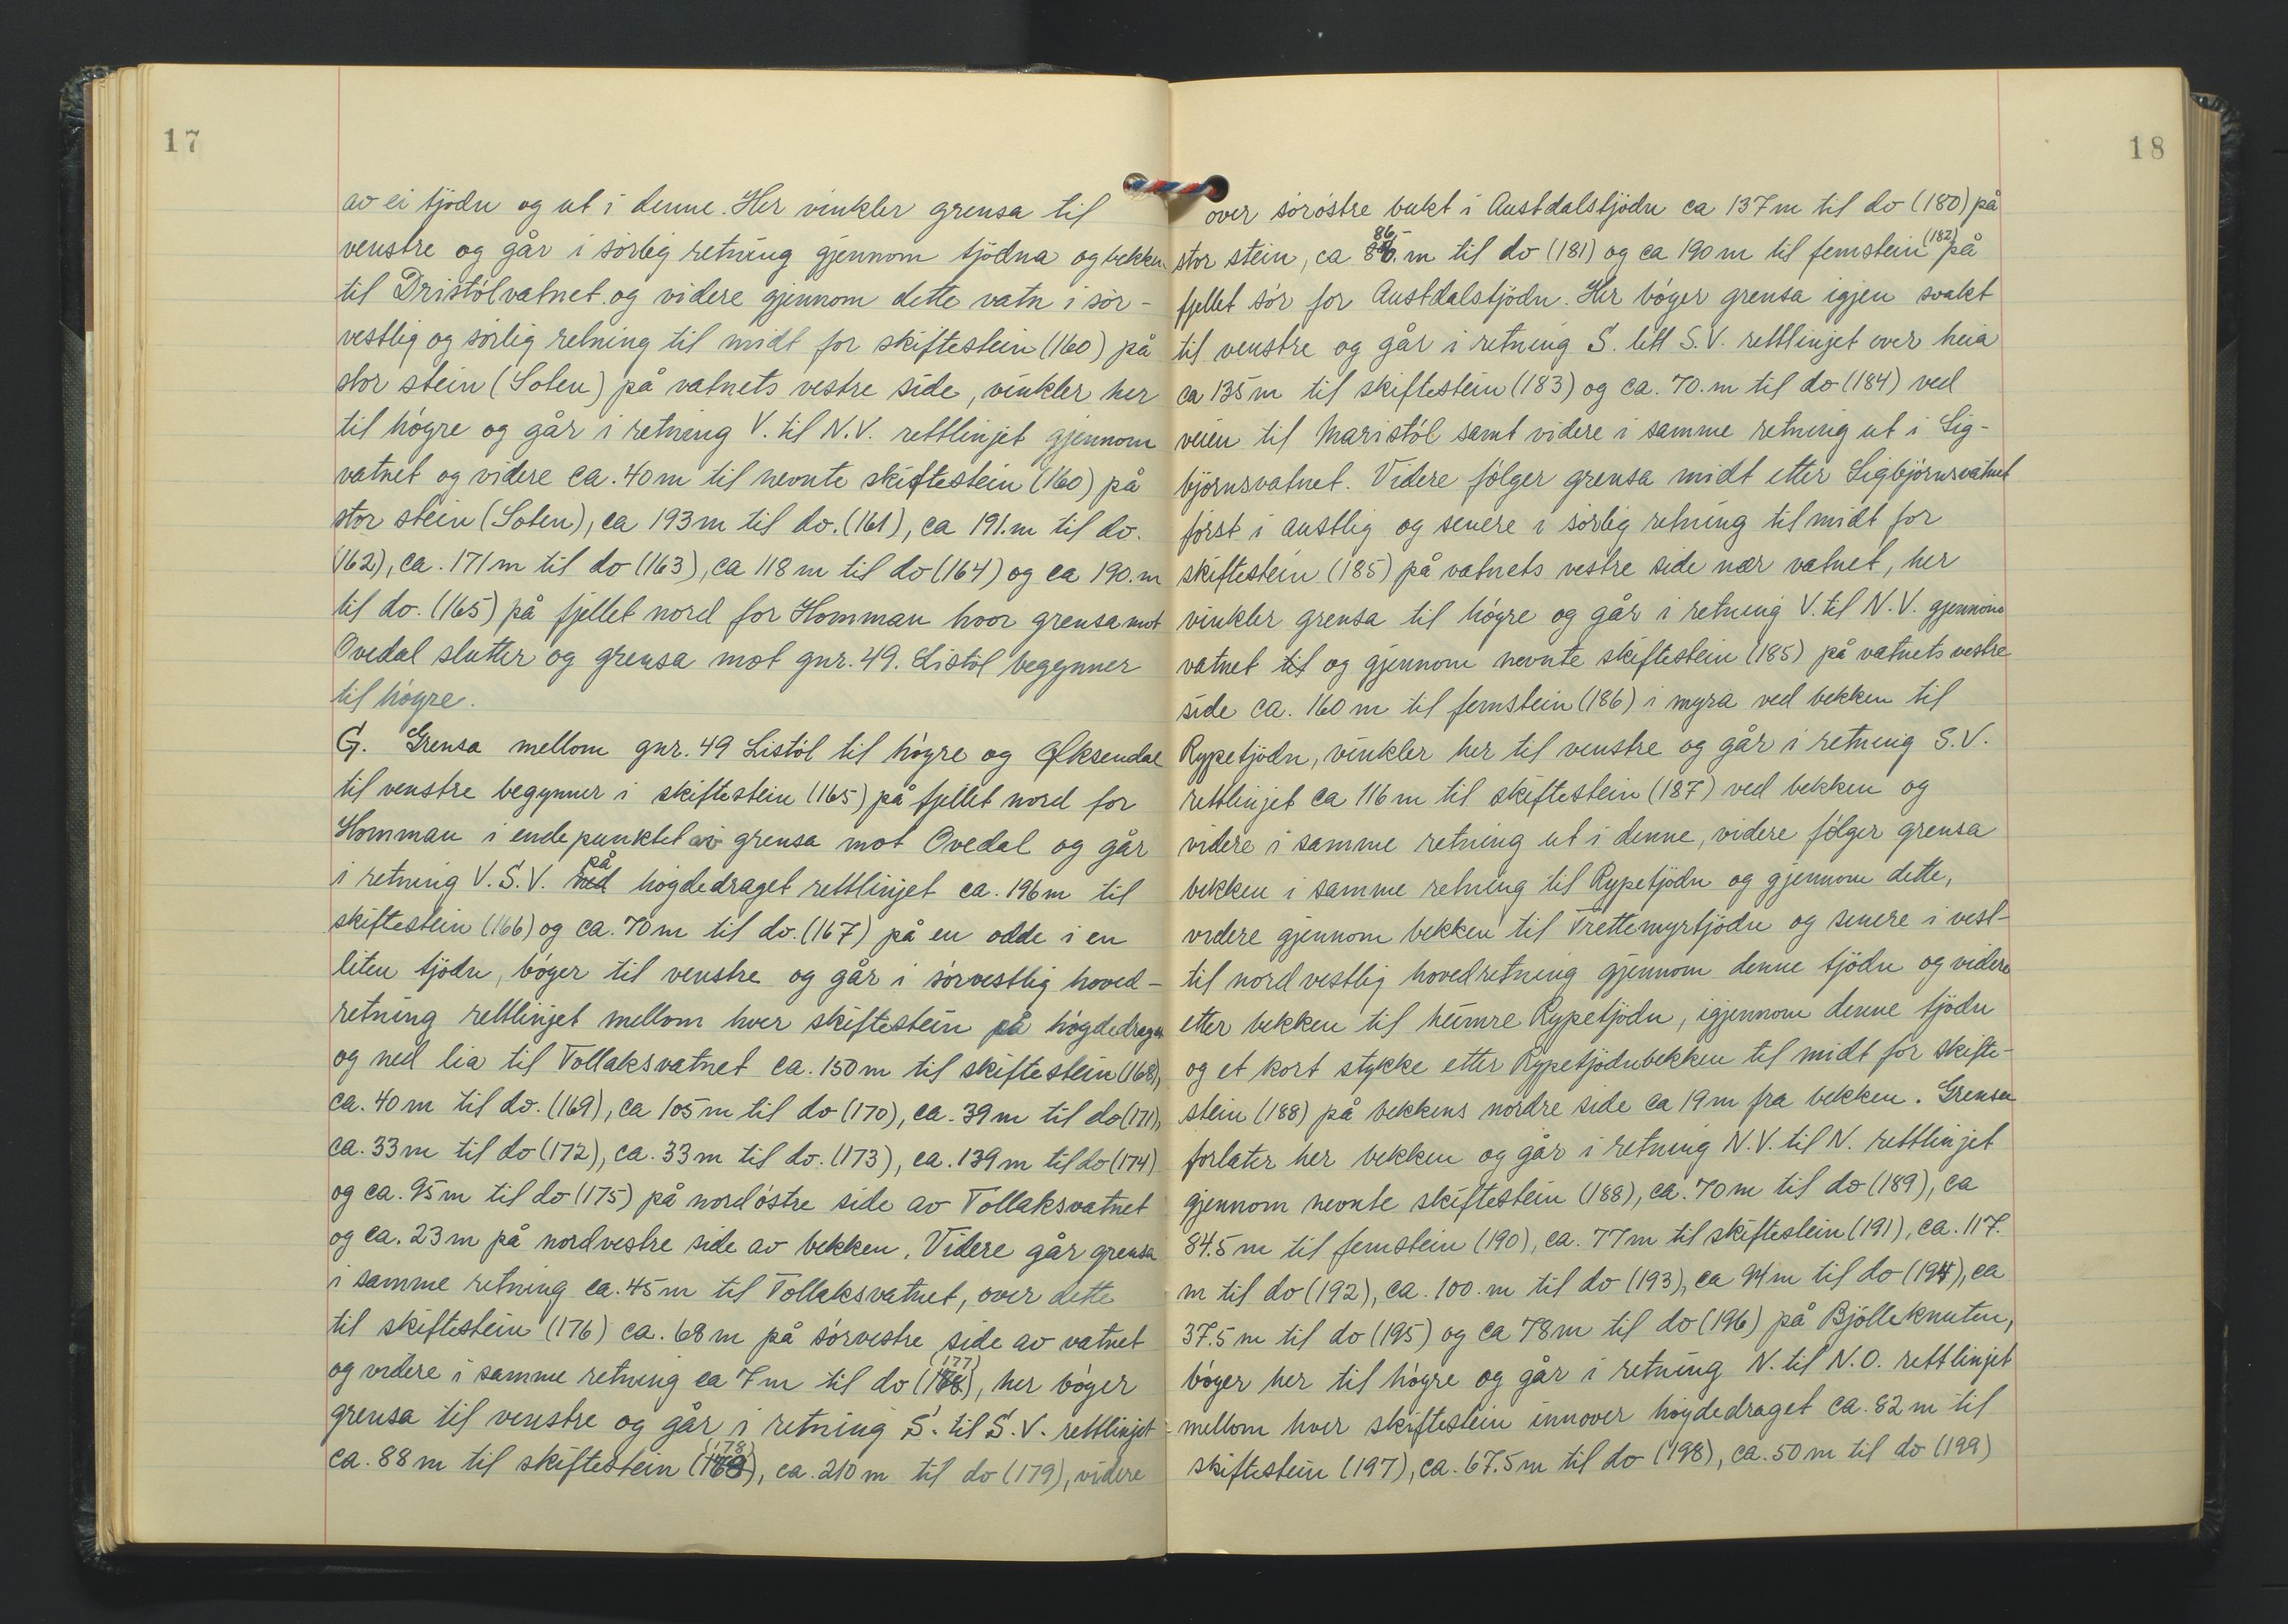 17
av ei tjödn og ut i denne. Her vinkler grensa til
venstre og går i sörlig retning gjennom tjödna og bekken
til Dristölvatnet og videre gjennom dette vatn i sör-
vestlig og sörlig retning til midt for skiftestein (160) på
stor stein (Solen) på vatnets vestre side, vinkler her
til högre og går i retning V. til N.V. rettlinjet gjennom
vatnet og videre ca. 40 m til nevnte skiftestein (160) på
stor stein (Solen), ca 193 m til do. (161), ca 191. m til do.
(162), ca. 171 m til do (163), ca 118 m til do (164) og ca 190. m
til do. (165) på fjellet nord for Homman hvor grensa mot
Ovedal slutter og grensa mot gnr. 49. Listöl begynner
til högre.
G. Grensa mellom gnr. 49 Listöl til högre og Øksendal
til venstre begynner i skiftestein (165) på fjellet nord for
Homman i endepunktet av grensa mot Ovedal og går
i retning V.S.V. ned på högdedraget rettlinjet ca. 196 m til
skiftestein (166) og ca. 70 m til do. (167) på en odde i en
liten tjödn, böger til venstre og går i sörvestlig hoved-
retning rettlinjet mellom hver skiftestein på högdedraget
og ned lia til Tollaksvatnet ca. 150 m til skiftestein (168),
ca. 40 m til do. (169), ca 105 m til do (170), ca. 39 m til do (171),
ca. 33 m til do (172), ca. 33 m til do. (173), ca. 139 m til do (174)
og ca. 95 m til do (175) på nordöstre side av Tollaksvatnet
og ca. 23 m på nordvestre side av bekken. Videre går grensa
i samme retning ca. 45 m til Tollaksvatnet, over dette
til skiftestein (176) ca. 68 m på sörvestre side av vatnet
og videre i samme retning ca 7 m til do (177), her böger
grensa til venstre og går i retning S. til S.V. rettlinjet
ca. 88 m til skiftestein (178), ca. 210 m til do (179), videre
18
over söröstre bukt i Austdalstjödn ca 137 m til do (180) på
stor stein, ca 86 m til do (181) og ca 190 m til femstein (182) på
fjellet sör for Austdalstjödn. Her böger grensa igjen svakt
til venstre og går i retning S. litt S.V. rettlinjet over heia
ca 135 m til skiftestein (183) og ca. 70. m til do (184) ved
veien til Maristöl samt videre i samme retning ut i Sig-
björnsvatnet. Videre fölger grensa midt etter Sigbjörnsvatnet
först i austlig og senere i sörlig retning til midt for
skiftestein (185) på vatnets vestre side nær vatnet, her
vinkler grensa til högre og går i retning V. til N.V. gjennom
vatnet til og gjennom nevnte skiftestein (185) på vatnets vestre
side ca. 160 m til femstein (186) i myra ved bekken til
Rypetjödn, vinkler her til venstre og går i retning S.V.
rettlinjet ca 116 m til skiftestein (187) ved bekken og
videre i samme retning ut i denne, videre fölger grensa
bekken i samme retning til Rypetjödn og gjennom dette,
videre gjennom bekken til Trettemyrtjödn og senere i vest-
til nordvestlig hovedretning gjennom denne tjödn og videre
etter bekken til heimre Rypetjödn, igjennom denne tjödn
og et kort stykke etter Rypetjödnbekken til midt for skifte-
stein (188) på bekkens nordre side ca 19 m fra bekken. Grensa
forlater her bekken og går i retning N.V. til N. rettlinjet
gjennom nevnte skiftestein (188), ca. 70 m til do (189), ca
84.5 m til femstein (190), ca. 77 m til skiftestein (191), ca. 117.
m til do (192), ca. 100. m til do (193), ca 94 m til do (194), ca
37.5 m til do (195) og ca 78 m til do (196) på Bjölleknuten,
böger her til högre og går i retning N. til N.O. rettlinjet
mellom hver skiftestein innover högdedraget ca. 82 m til
skiftestein (197), ca. 67.5 m til do (198), ca. 50 m til do (199)